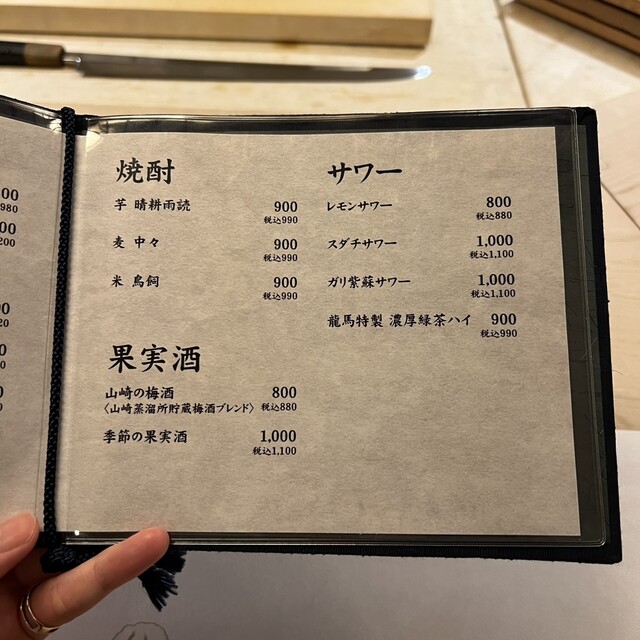 焼酎
芋 晴耕雨読 900
税込990
麦 中々 900
税込990
米 鳥飼 900
税込990
果実酒
山崎の梅酒 800
〈山崎蒸溜所貯蔵梅酒ブレンド〉 税込880
季節の果実酒 1,000
税込1,100
サワー
レモンサワー 800
税込880
スダチサワー 1,000
税込1,100
ガリ紫蘇サワー 1,000
税込1,100
龍馬特製 濃厚緑茶ハイ 900
税込990